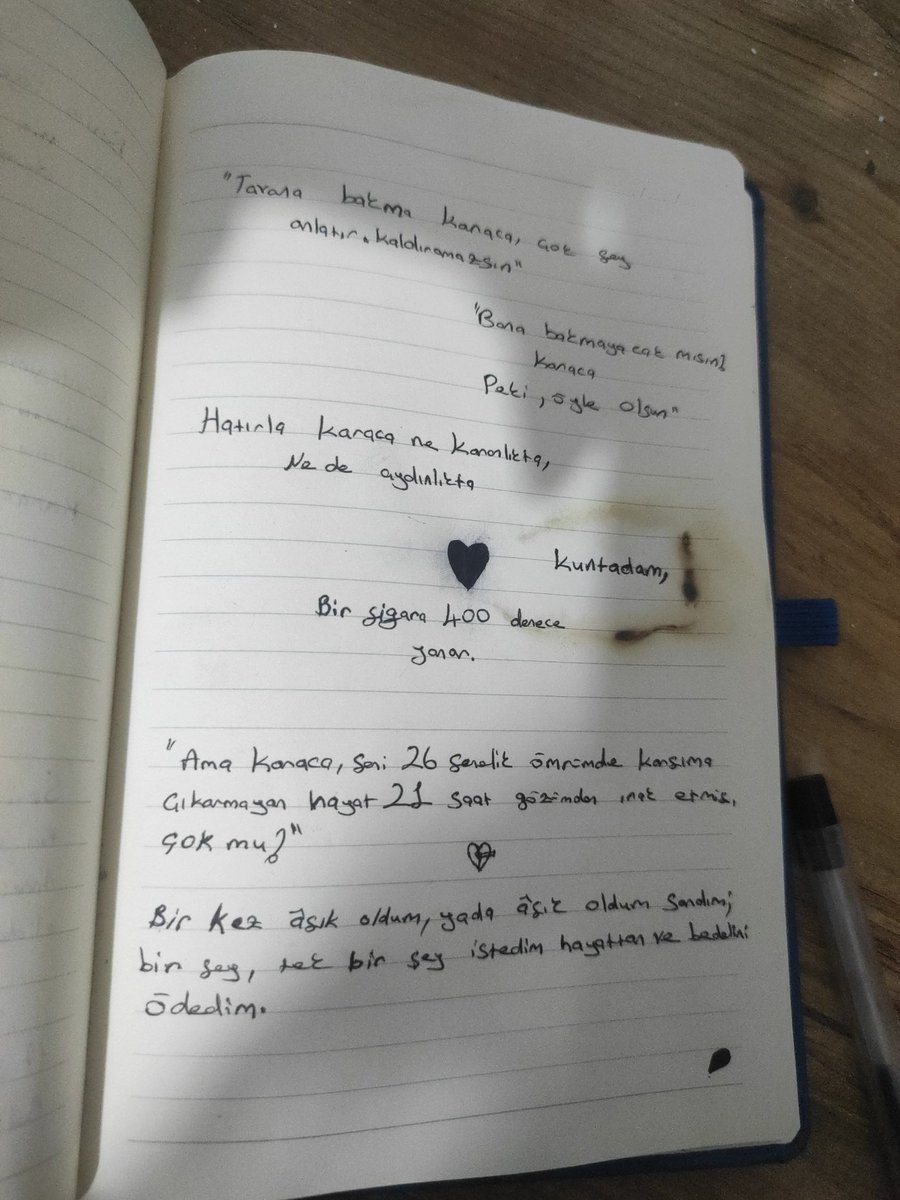 "Tavana bakma karaca, çok şey
anlatır. kaldıramazsın"
"Bana bakmayacak mısın?
karaca
Peki, öyle olsun"
Hatırla karaca ne karanlıkta,
Ne de aydınlıkta
Kuntadam,
Bir sigara 400 derece
yanar.
"Ama karaca, seni 26 senelik ömrümde karşıma
çıkarmayan hayat 21 saat gözümden ırak etmiş,
çok mu?"
Bir kez âşık oldum, yada âşık oldum sandım;
bir şey, tek bir şey istedim hayattan ve bedelini
ödedim.